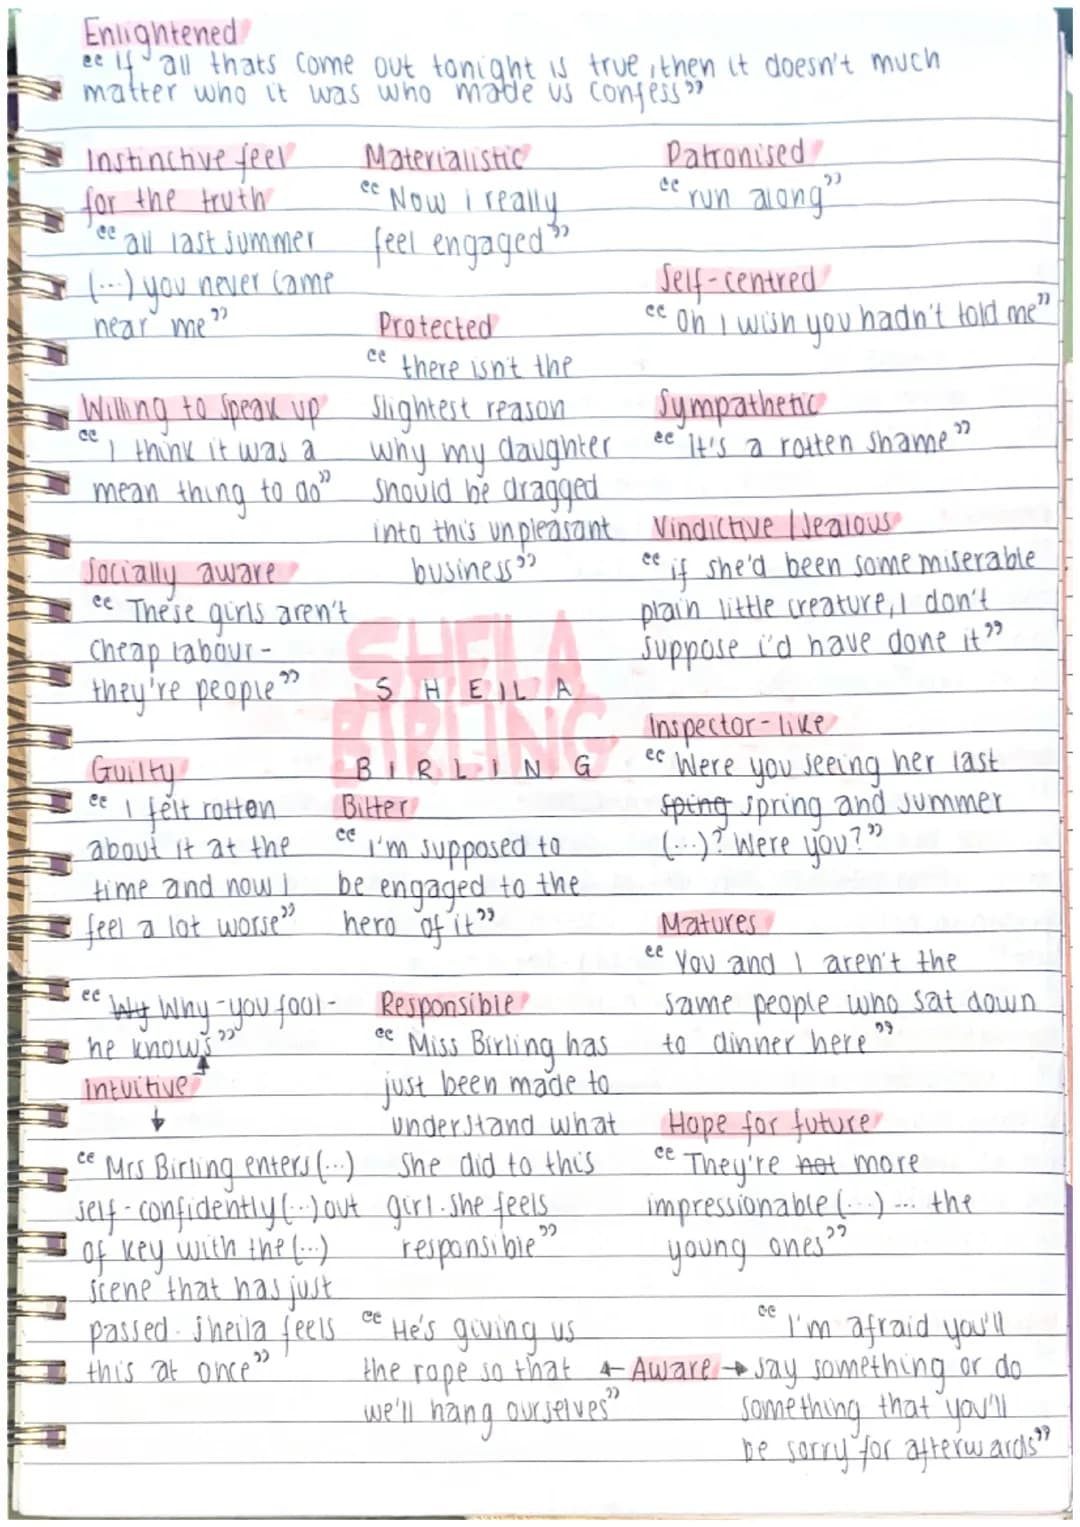 Enlightened
“If all thats come out tonight is true, then it doesn't much
matter who it was who made us confess”
Instinctive feel
for the truth
“all last summer
(...) you never came
near me”
Willing to speak up
“I think it was a
mean thing to do”
Socially aware
“These girls aren't
cheap labour-
they're people”
Guilty
“I felt rotten
about it at the
time and now I
feel a lot worse”
“Wy Why-you fool-
he knows”
Intuitive
“Mrs Birling enters (...)
self-confidently (...) out
of key with the (...)
scene that has just
passed. Sheila feels
this at once”
Materialistic
“Now I really
feel engaged”
Protected
“there isn't the
slightest reason
why my daughter
should be dragged
into this unpleasant
business”
SHEILA
SHEILA
BIRLING
BIRLING
Bitter
“I'm supposed to
be engaged to the
hero of it”
Responsible
“Miss Birling has
just been made to
understand what
she did to this
girl. She feels
responsible”
“He's giving us
the rope so that
we'll hang ourselves”
Patronised
“run along”
Self-centred
“Oh I wish you hadn't told me”
Sympathetic
“It's a rotten shame”
Vindictive / Jealous
“if she'd been some miserable
plain little creature, I don't
suppose i'd have done it”
Inspector-like
“Were you seeing her last
sping spring and summer
(...)? Were you?”
Matures
“You and I aren't the
same people who sat down
to dinner here”
Hope for future
“They're not more
impressionable (...) ... the
young ones”
← Aware →
“I'm afraid you'll
say something or do
something that you'll
be sorry for afterwards”